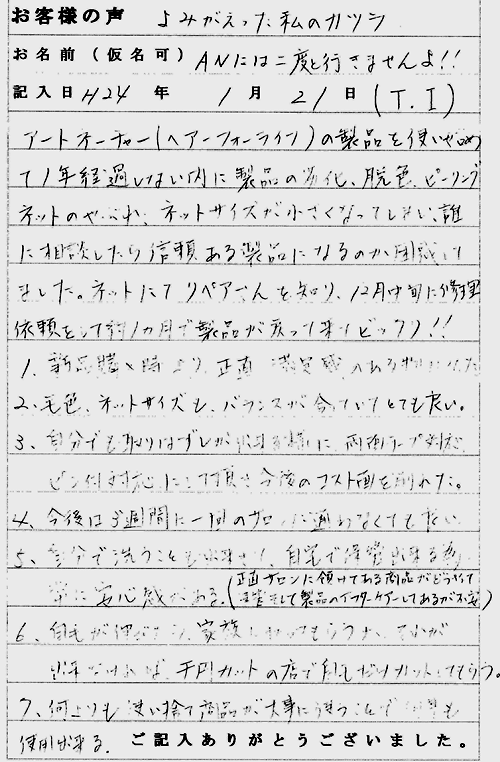 お客様の声 よみがえった私のカツラ
お名前（仮名可） ANには二度と行きませんよ!!
記入日 H24 年 1 月 21 日 (T.I)
アートネーチャー(ヘアーフォーライフ)の製品を使い始め
て1年経過しない内に製品の劣化、脱色、ピーリング
ネットのやぶれ、ネットサイズが小さくなってしまい、誰
に相談したら信頼ある製品になるのか困惑して
ました。ネットにてリペアさんを知り、12月中旬に修理
依頼をして約1カ月で製品が戻って来てビックリ!!
1、新品購入時より、正直 満足感のある
2、毛色、ネットサイズも、バランスが合っていてとても良い。
3、自分でも取りはずしが出来る様に、両面テープ対応
ピン付対応にして頂き今後のコスト面を削れた。
4、今後は3週間に一回のサロンに通わなくても良い
5、自分で洗うことも出来て、自宅で保管出来る為
常に安心感がある。(正直サロンに預けてある商品がどうやって
製品のアフターケアーしてあるか不安)
6、自毛が伸びたら、家族に
出来なければ、千円カットの店で自毛だけカットしてもらう。
7、何よりも使い捨て商品が大事に使うことで 何年も
使用出来る。 ご記入ありがとうございました。